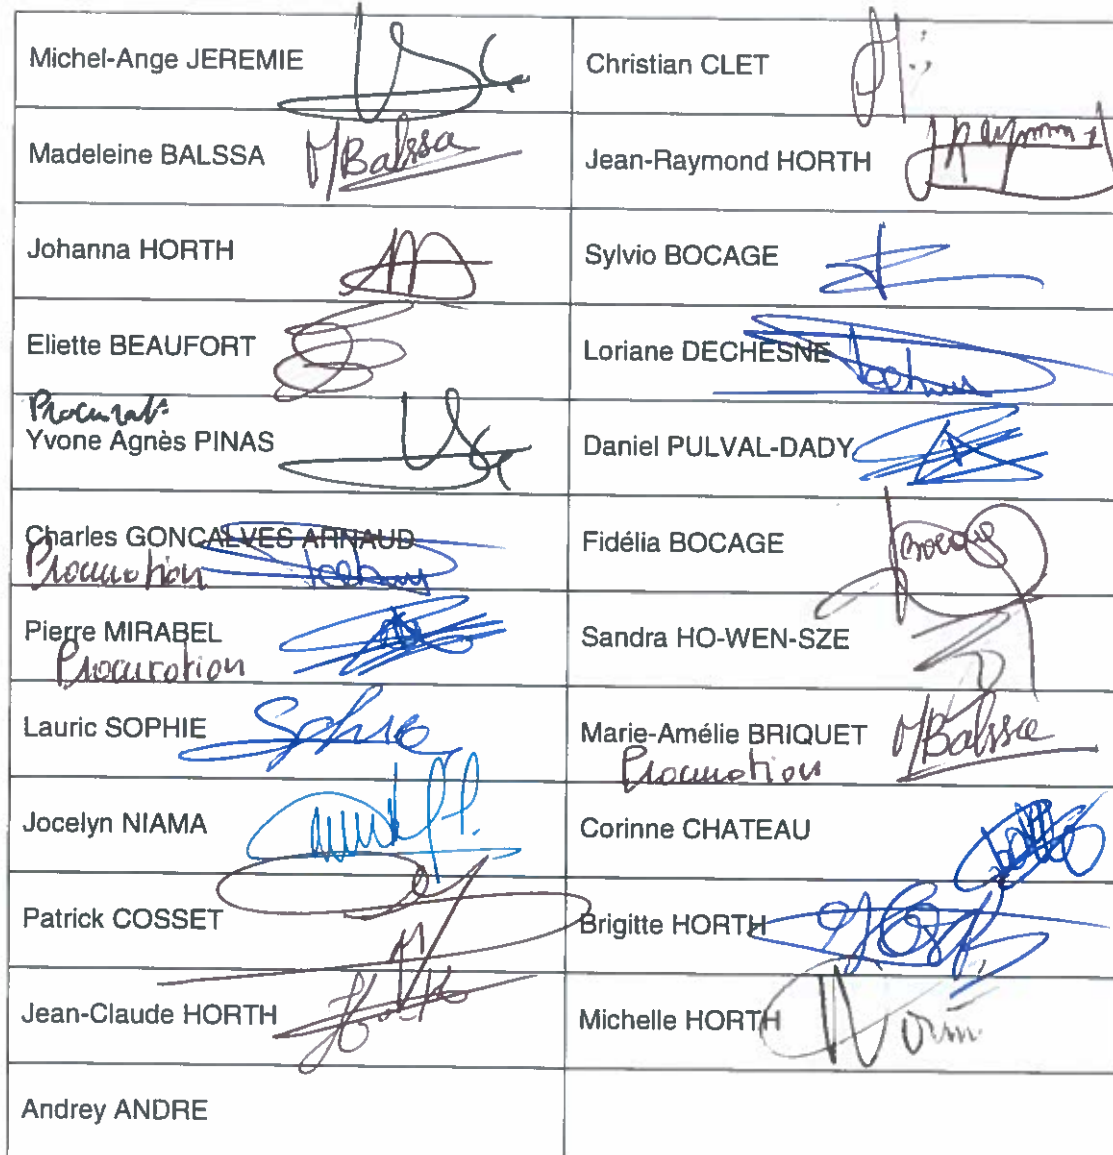 Michel-Ange JEREMIE
Christian CLET
Madeleine BALSSA
MBalssa
Jean-Raymond HORTH
Johanna HORTH
Sylvio BOCAGE
Eliette BEAUFORT
Loriane DECHESNE
Yvone Agnès PINAS
Daniel PULVAL-DADY
Charles GONCALVES ARNAUD
Procuration
Fidélia BOCAGE
Bocage
Pierre MIRABEL
Procuration
Sandra HO-WEN-SZE
Lauric SOPHIE
Sophie
Marie-Amélie BRIQUET
MBalssa
Procuration
Jocelyn NIAMA
Corinne CHATEAU
Patrick COSSET
Brigitte HORTH
Jean-Claude HORTH
Michelle HORTH
Andrey ANDRE